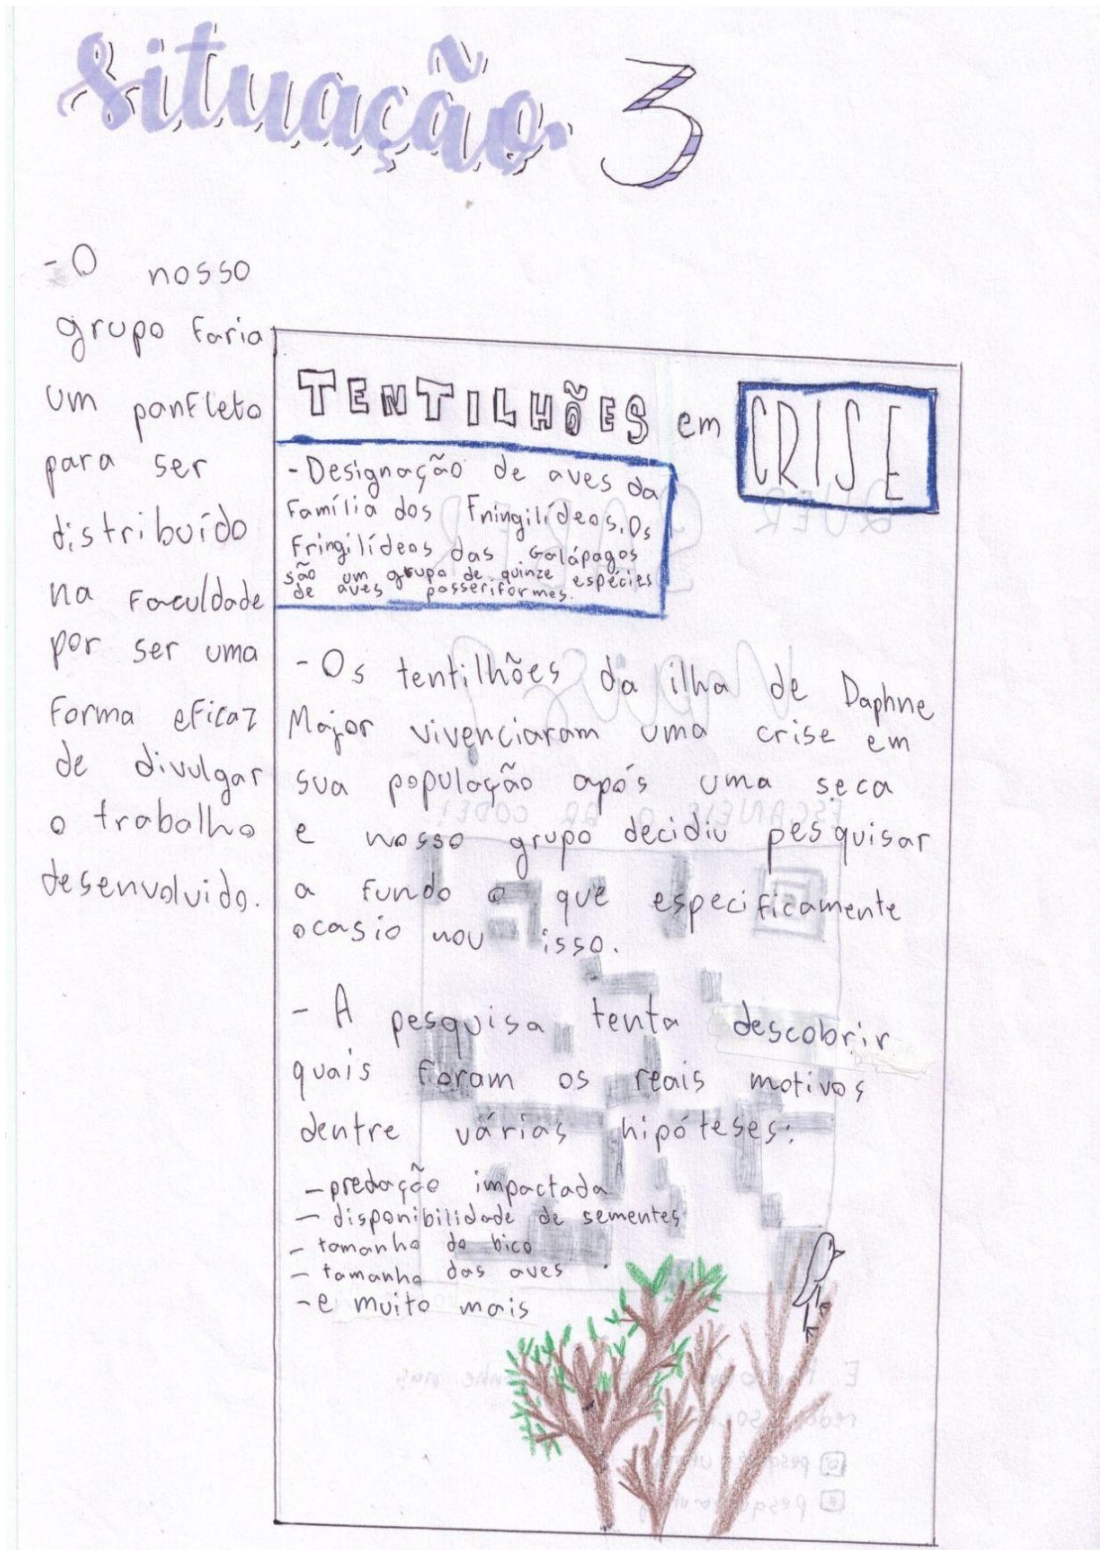 Situação 3
- O nosso
grupo faria
um panfleto
para ser
distribuído
na faculdade
por ser uma
forma eficaz
de divulgar
o trabalho
desenvolvido.
TENTILHÕES em CRISE
- Designação de aves da
Família dos Fningilídeos. Os
Fringilídeos das Galápagos
são um grupo de quinze espécies
de aves passeriformes.
- Os tentilhões da ilha de Daphne
Major vivenciaram uma crise em
sua população após uma seca
e nosso grupo decidiu pesquisar
a fundo o que especificamente
ocasionou isso.
- A pesquisa tenta descobrir
quais foram os reais motivos
dentre várias hipóteses:
- predação impactada
- disponibilidade de sementes
- tamanho do bico
- tamanho das aves
- e muito mais
QUER
SABER
MAIS?
ESCANEIE O QR CODE!